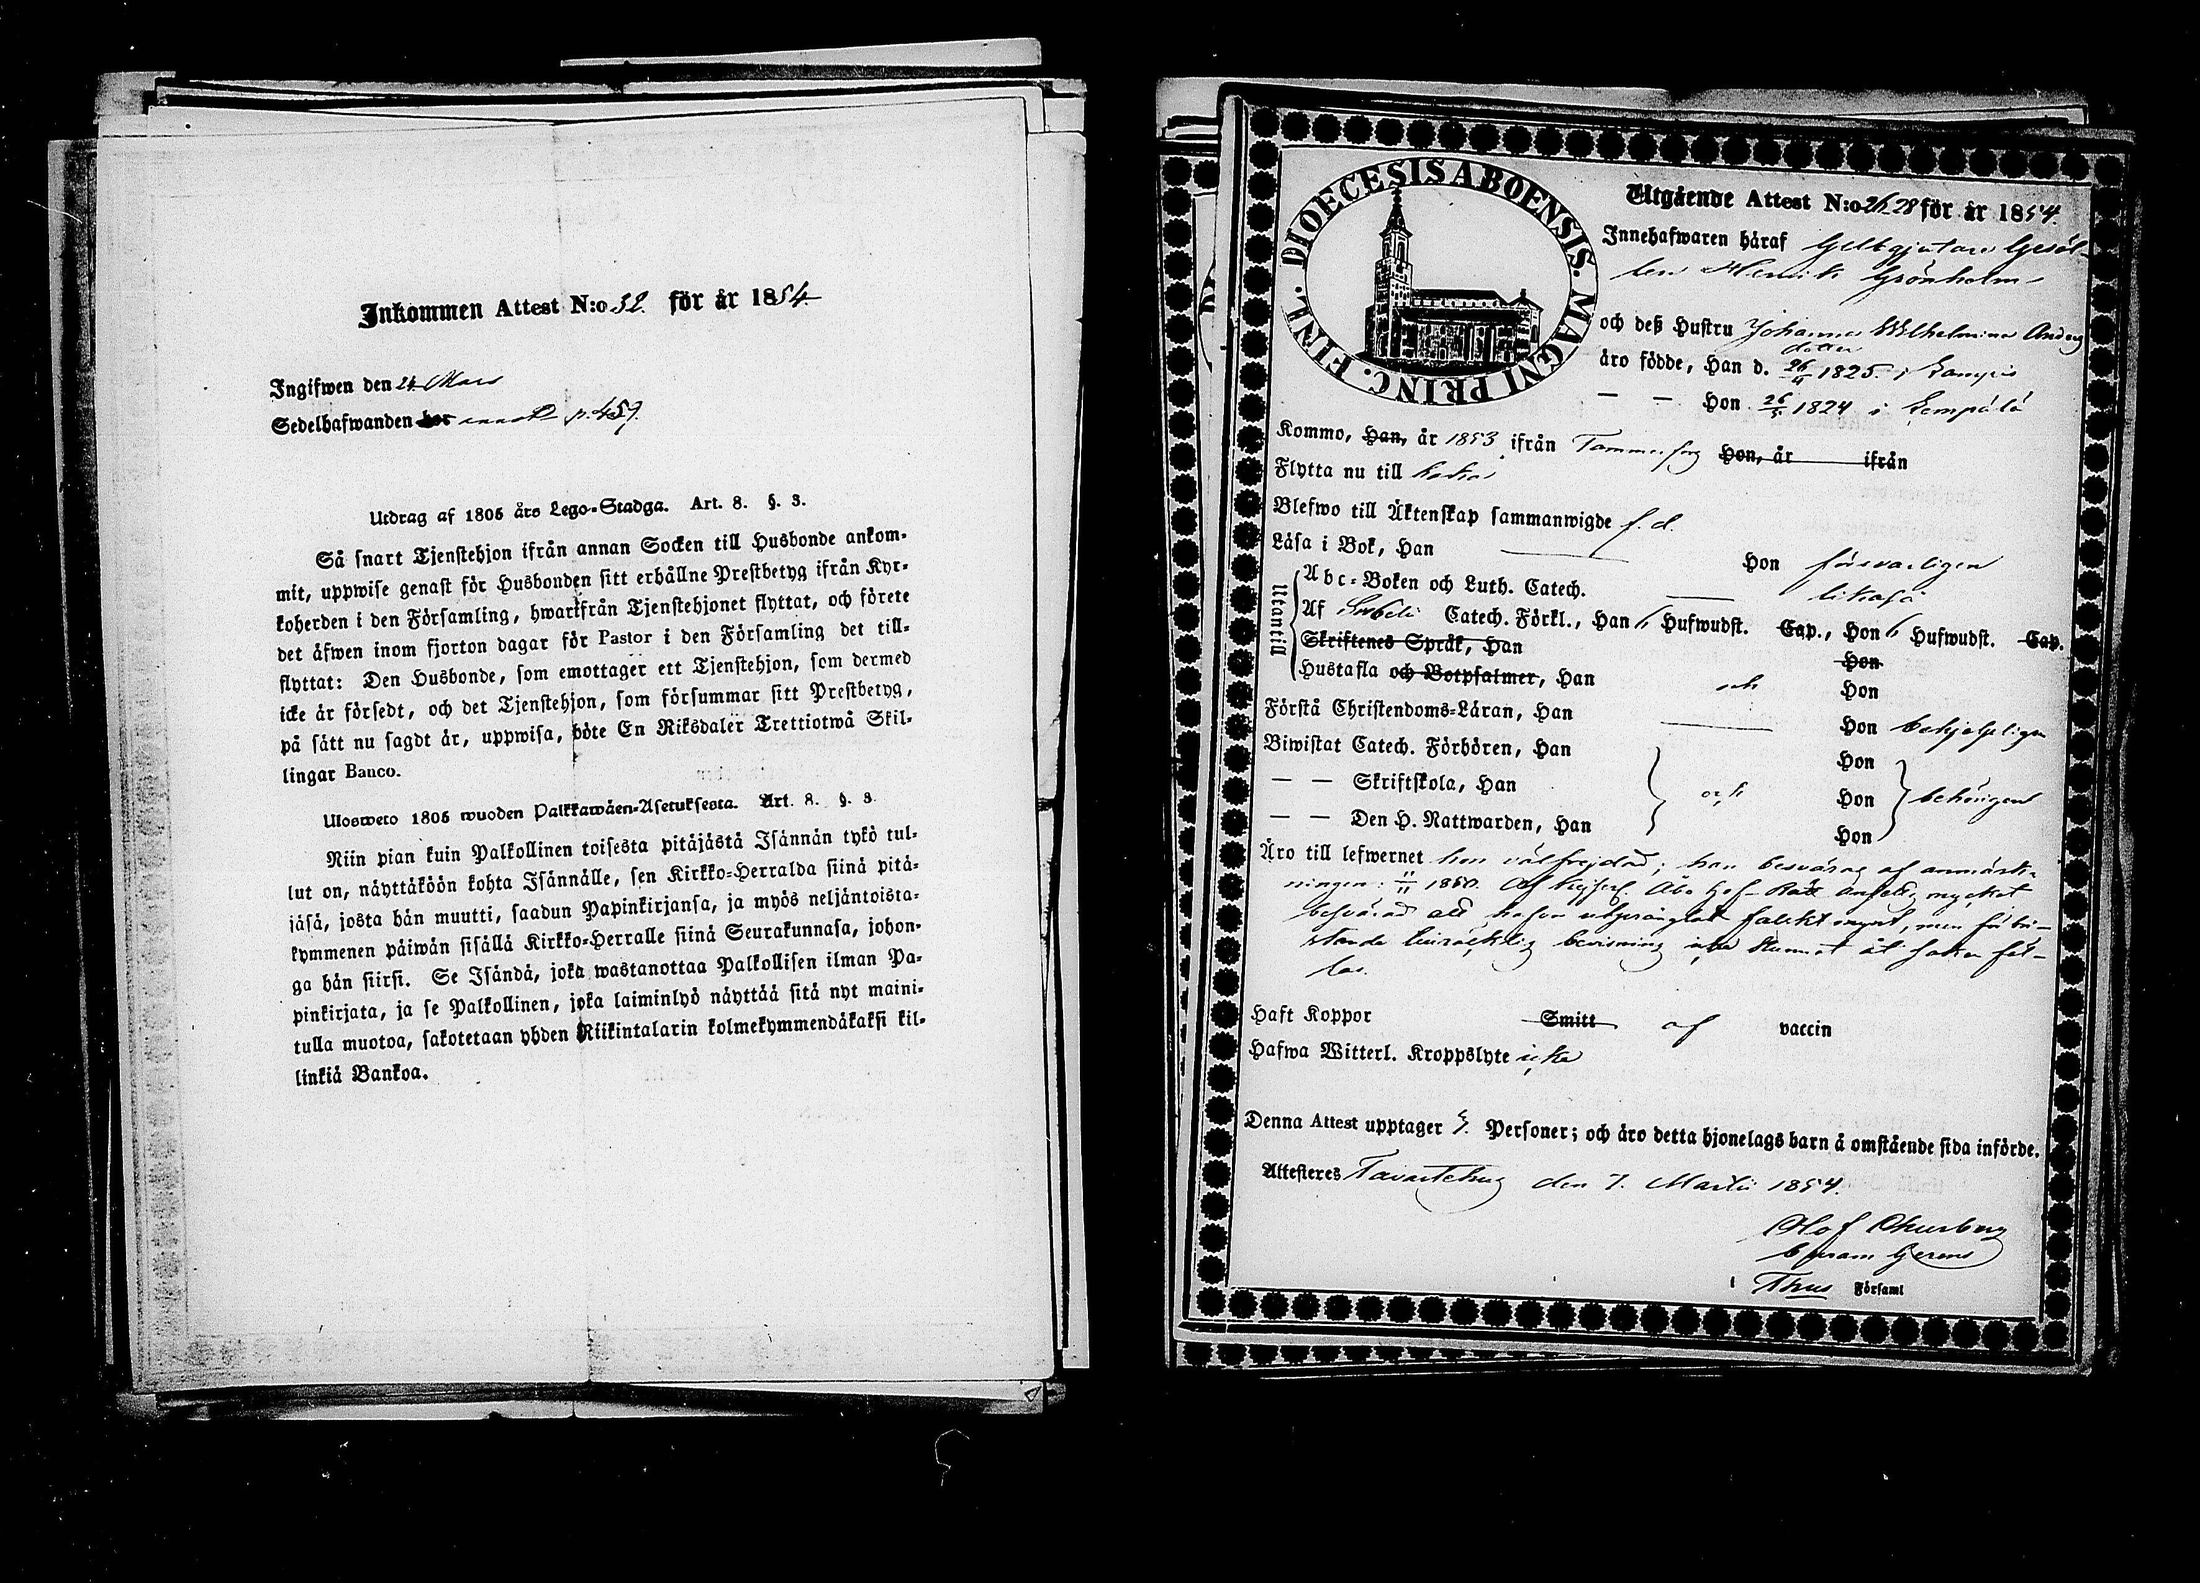 Inkommen Attest N:o 52. för år 1854
Ingifwen den 24 Mars
Sedelhafwanden har p. 459.
Utdrag af 1805 års Lego-Stadga. Art. 8. §. 3.
Så snart Tjenstehjon ifrån annan Socken till Husbonde ankom-
mit, uppwise genast för Husbonden sitt erhållne Prestbetyg ifrån Kyr-
koherden i den Församling, hwarifrån Tjenstehjonet flyttat, och förete
det äfwen inom fjorton dagar för Pastor i den Församling det till-
flyttat: Den Husbonde, som emottager ett Tjenstehjon, som dermed
icke är försedt, och det Tjenstehjon, som försummar sitt Prestbetyg,
på sätt nu sagdt är, uppwisa, böte En Riksdaler Trettiotwå Skil-
lingar Banco.
Ulosweto 1805 wuoden Palkkawäen-Asetuksesta. Art. 8. §. 3.
Niin pian kuin Palkollinen toisesta pitäjästä Isännän tykö tul-
lut on, näyttäköön kohta Isännälle, sen Kirkko-Herralda siinä pitä-
jäsä, josta hän muutti, saadun Papinkirjansa, ja myös neljäntoista-
kymmenen päiwän sisällä Kirkko-Herralle siinä Seurakunnasa, johon-
ga hän siirsi. Se Isändä, joka wastanottaa Palkollisen ilman Pa-
pinkirjata, ja se Palkollinen, joka laiminlyö näyttää sitä nyt maini-
tulla muotoa, sakotetaan yhden Riikintalarin kolmekymmendäkaksi kil-
linkiä Bankoa.
DIOECESIS ABOENSIS. MAGNI PRINC. FINL.
Utgående Attest N:o 26-28 för år 1854.
Innehafwaren häraf Geltgjutare Gesäl-
len Henrik Grönholm
och deß Hustru Johanna Wilhelmina Anders
dotter
äro födde, Han d. 26/11 1825. i Kampis
— — Hon 26/5 1824 i Lempälä
Kommo, Han, år 1853 ifrån Tammerfors Hon, år ifrån
Flytta nu till
Blefwo till Äktenskap sammanwigde f. d.
Läsa i Bok, Han — Hon försvarligen
Utantill
Abc-Boken och Luth. Catech. — likaså
Af Svebelii Catech. Förkl., Han 6 Hufwudst. Cap., Hon 6 Hufwudst. Cap.
Skriftenes Språk, Han Hon
Hustafla och Botpsalmer, Han och Hon
Förstå Christendoms-Läran, Han — Hon behjelpligen
Biwistat Catech. Förhören, Han Hon
— — Skriftskola, Han och Hon behörigen
— — Den H. Nattwarden, Han Hon
Äro till lefwernet hon välfrejdad; han besväras af anmärk-
ningen: 11/11 1850. Af Kejserl. Åbo Hof-Rätt ansedd mycket
besvärad att hafva utprånglat falskt mynt, men för bri-
stande laga bevisning icke kunnat åt saken fäl-
las.
Haft Koppor Smitt af vaccin
Hafwa Witterl. Kroppslyte icke
Denna Attest upptager 3. Personer; och äro detta hjonelags barn å omstående sida införde.
Attesteres Tavastehus den 7. Martii 1854.
Olof
i Thus Församl